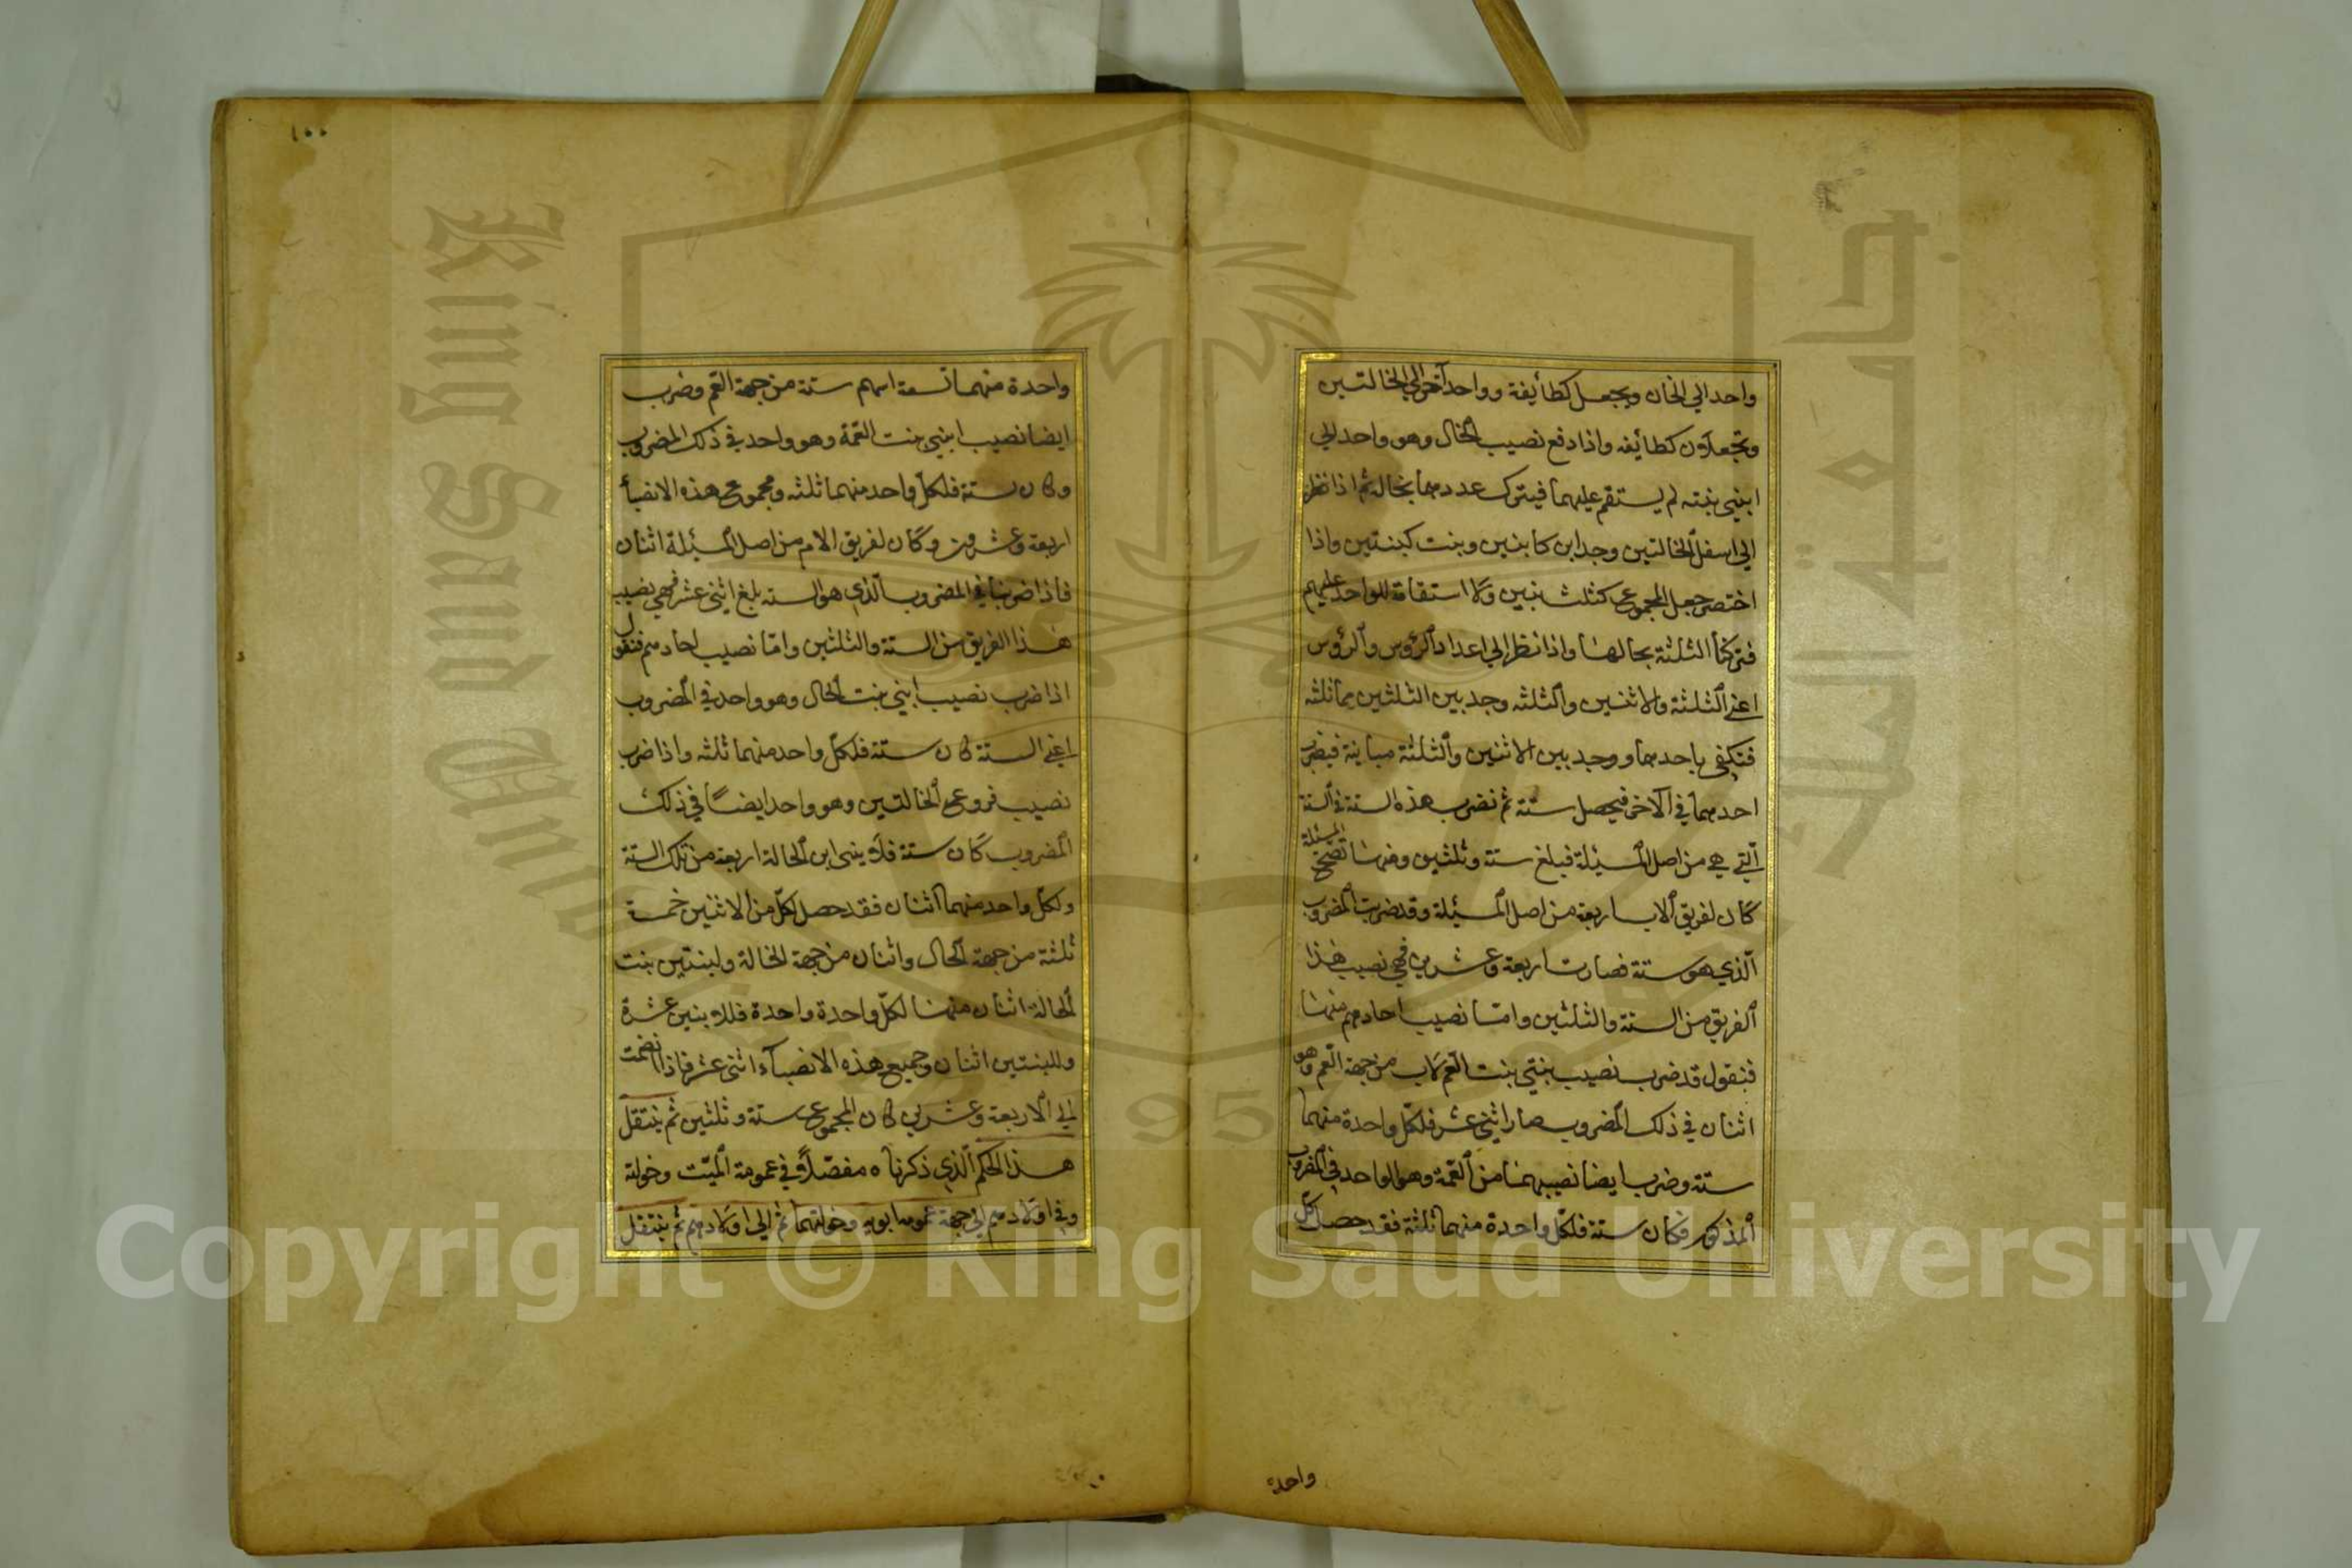 واحد الى الخال ويجعل كطائفة وواحد آخر الى الخالتين
وتجعلان كطائفه واذا دفع نصيب الخال وهو واحد الى
ابني بنته لم يستقم عليهما فيترك عددهما بحاله ثم اذا نظر
الى اسفل الخالتين وجد ابن كابنين وبنت كبنتين واذا
اختصر جعل المجموع كثلث بنين ولا استقامة للواحد عليهم
فتركنا الثلثة بحالها واذا نظر الى اعداد الرؤس والرؤس
اعني الثلثة والاثنين والثلثه وجد بين الثلثين مماثلثه
فتكفي باحدهما ووجد بين الاثنين والثلثة مباينة فيضرب
احدهما في الآخر فيحصل ستة ثم نضرب هذه الستة في الستة
التي هي من اصل المسئلة فبلغ ستة وثلثين ومنها تصح المسئلة
كان لفريق الاب اربعة من اصل المسئلة وقد ضربت المضروب
الذي هو ستة فصارت اربعة وعشرين فهي نصيب هذا
الفريق من الستة والثلثين وامّا نصيب احادهم منها
فنقول قد ضرب نصيب بنتي بنت العم لاب من جهة العم وهو
اثنان في ذلك المضروب صار اثني عشر فلكل واحدة منهما
ستة وضرب ايضا نصيبهما من العمة وهو الواحد في المضروب
المذكور فكان ستة فلكل واحدة منهما ثلثة فقد حصل لكل
واحدة
١٠٠
واحدة منهما تسعة اسهم ستة من جهة العم وضرب
ايضا نصيب ابني بنت العمة وهو واحد في ذلك المضروب
وكان ستة فلكل واحد منهما ثلثه ومجموع هذه الانصبأ
اربعة وعشرون وكان لفريق الام من اصل المسئلة اثنان
فاذا ضربنا في المضروب الذي هو الستة بلغ اثني عشر فهي نصيب
هذا الفريق من الستة والثلثين وامّا نصيب احادهم فنقول
اذا ضرب نصيب ابني بنت الخال وهو واحد في المضروب
اعني الستة كان ستة فلكل واحد منهما ثلثه واذا ضرب
نصيب فروع الخالتين وهو واحد ايضًا في ذلك
المضروب كان ستة فلابني ابن الخالة اربعة من تلك الستة
ولكل واحد منهما اثنان فقد حصل لكل من الاثنين خمسة
ثلثة من جهة الخال واثنان من جهة الخالة ولبنتين بنت
الخالة اثنان منها لكل واحدة واحدة فللابنين عشرة
وللبنتين اثنان وجميع هذه الانصبآء اثنى عشر فاذا انضمت
الى الاربعة وعشرين كان المجموع ستة وثلثين ثم ينتقل
هذا الحكم الذي ذكرناه مفصّلاً في عمومة الميّت وخولته
وفي اولادهم الى جهة عمومة ابويه وخولتهما ثم الى اولادهم ثم ينتقل
Copyright © King Saud University